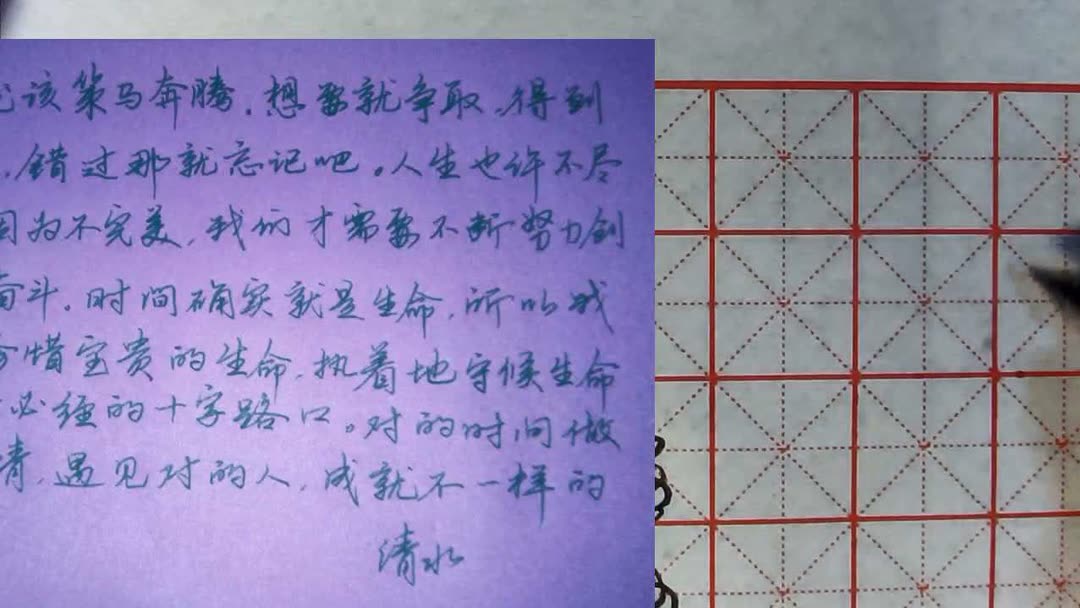 该策马奔腾，想要就争取，得到
，错过那就忘记吧。人生也许不尽
因为不完美，我们才需要不断努力创
奋斗。时间确实就是生命，所以我
珍惜宝贵的生命，执着地守候生命
必经的十字路口。对的时间做
，遇见对的人，成就不一样的
清水